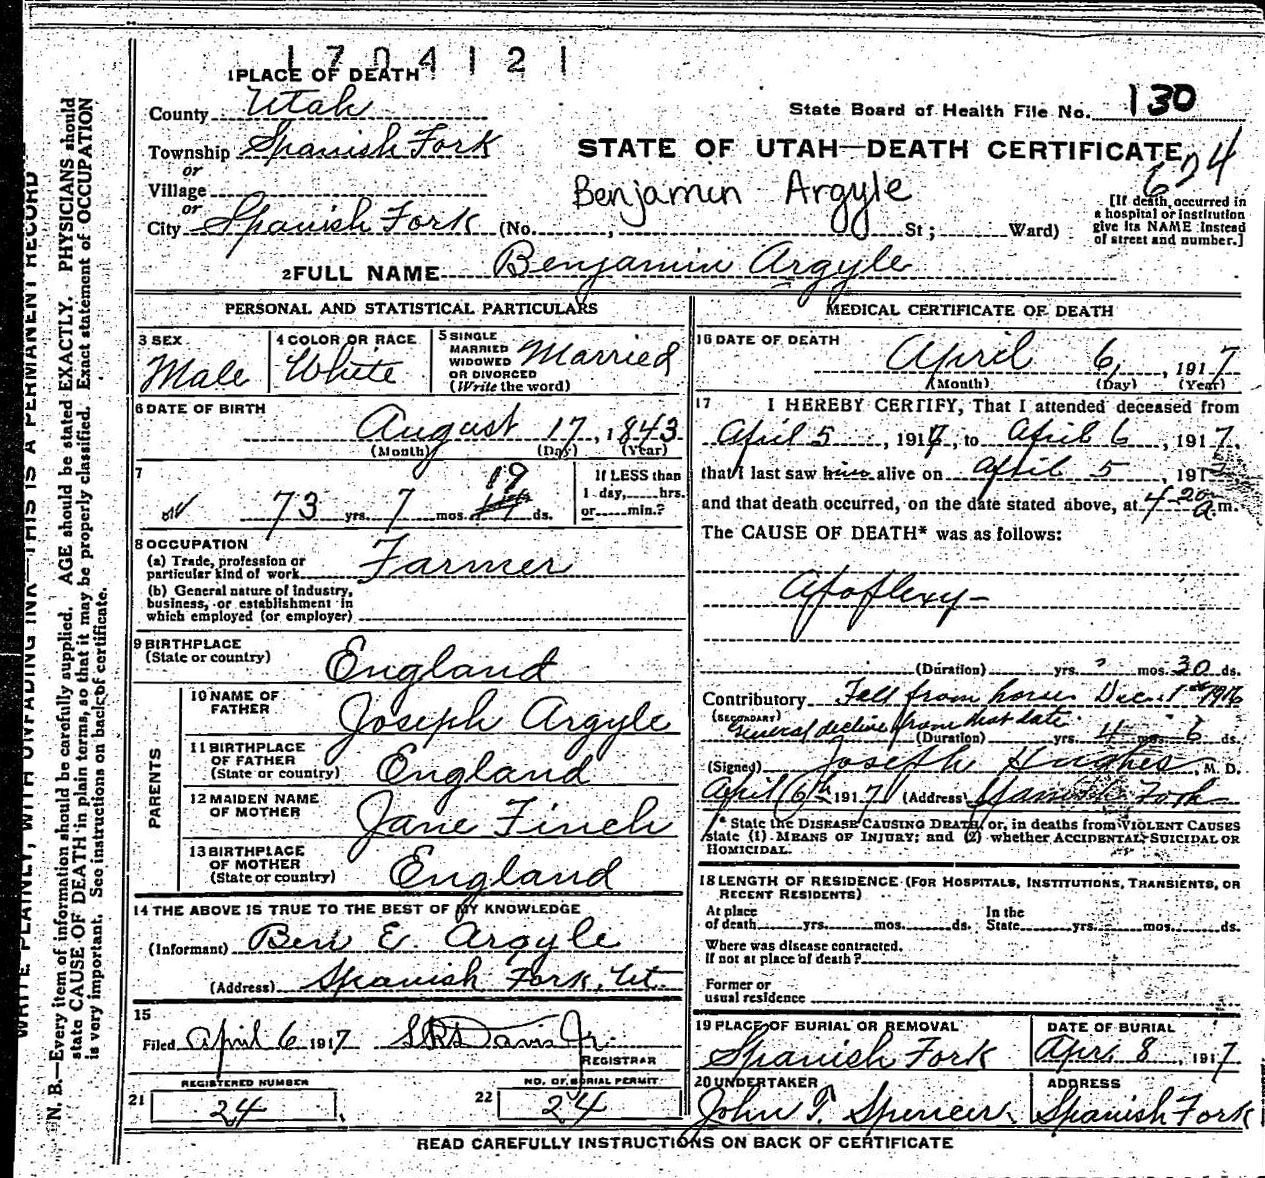 1704121
1 PLACE OF DEATH
County Utah
State Board of Health File No. 130
Township Spanish Fork
STATE OF UTAH—DEATH CERTIFICATE
674
or
Village
Benjamin Argyle
or
City Spanish Fork (No. , St; Ward)
[If death occurred in
a hospital or institution
give its NAME instead
of street and number.]
2 FULL NAME Benjamin Argyle
PERSONAL AND STATISTICAL PARTICULARS
3 SEX
Male
4 COLOR OR RACE
White
5 SINGLE
MARRIED
WIDOWED
OR DIVORCED
(Write the word)
Married
6 DATE OF BIRTH
August 17, 1843
(Month) (Day) (Year)
7
73 yrs. 7 mos. 19 ds.
If LESS than
1 day, hrs.
or min.?
8 OCCUPATION
(a) Trade, profession or
particular kind of work Farmer
(b) General nature of industry,
business, or establishment in
which employed (or employer)
9 BIRTHPLACE
(State or country) England
PARENTS
10 NAME OF
FATHER Joseph Argyle
11 BIRTHPLACE
OF FATHER
(State or country) England
12 MAIDEN NAME
OF MOTHER Jane Finch
13 BIRTHPLACE
OF MOTHER
(State or country) England
14 THE ABOVE IS TRUE TO THE BEST OF MY KNOWLEDGE
(Informant) Ben E. Argyle
(Address) Spanish Fork, Ut.
15
Filed April 6 1917 Davis Jr.
REGISTRAR
REGISTERED NUMBER
21 24
NO. OF BURIAL PERMIT
22 24
MEDICAL CERTIFICATE OF DEATH
16 DATE OF DEATH
April 6, , 1917
(Month) (Day) (Year)
17 I HEREBY CERTIFY, That I attended deceased from
April 5 , 1917, to April 6 , 1917.
that I last saw him alive on April 5 , 191
and that death occurred, on the date stated above, at 4-20 a.m.
The CAUSE OF DEATH* was as follows:
Apoplexy—
(Duration) yrs. mos. 30 ds.
Contributory Fall from horse Dec. 1st 1916
(SECONDARY) General decline from that date
(Duration) yrs. 4 mos. 6 ds.
(Signed) Joseph Hughes, M. D.
April 6th 1917 (Address) Spanish Fork
* State the DISEASE CAUSING DEATH, or, in deaths from VIOLENT CAUSES
state (1) MEANS OF INJURY; and (2) whether ACCIDENTAL, SUICIDAL OR
HOMICIDAL.
18 LENGTH OF RESIDENCE (FOR HOSPITALS, INSTITUTIONS, TRANSIENTS, OR
RECENT RESIDENTS)
At place
of death yrs. mos. ds.
In the
State yrs. mos. ds.
Where was disease contracted.
if not at place of death?
Former or
usual residence
19 PLACE OF BURIAL OR REMOVAL
Spanish Fork
DATE OF BURIAL
Apr. 8 , 1917
20 UNDERTAKER
John T. Spencer.
ADDRESS
Spanish Fork
READ CAREFULLY INSTRUCTIONS ON BACK OF CERTIFICATE
WRITE PLAINLY, WITH UNFADING INK—THIS IS A PERMANENT RECORD
N. B.—Every item of information should be carefully supplied. AGE should be stated EXACTLY. PHYSICIANS should
state CAUSE OF DEATH in plain terms, so that it may be properly classified. Exact statement of OCCUPATION
is very important. See instructions on back of certificate.